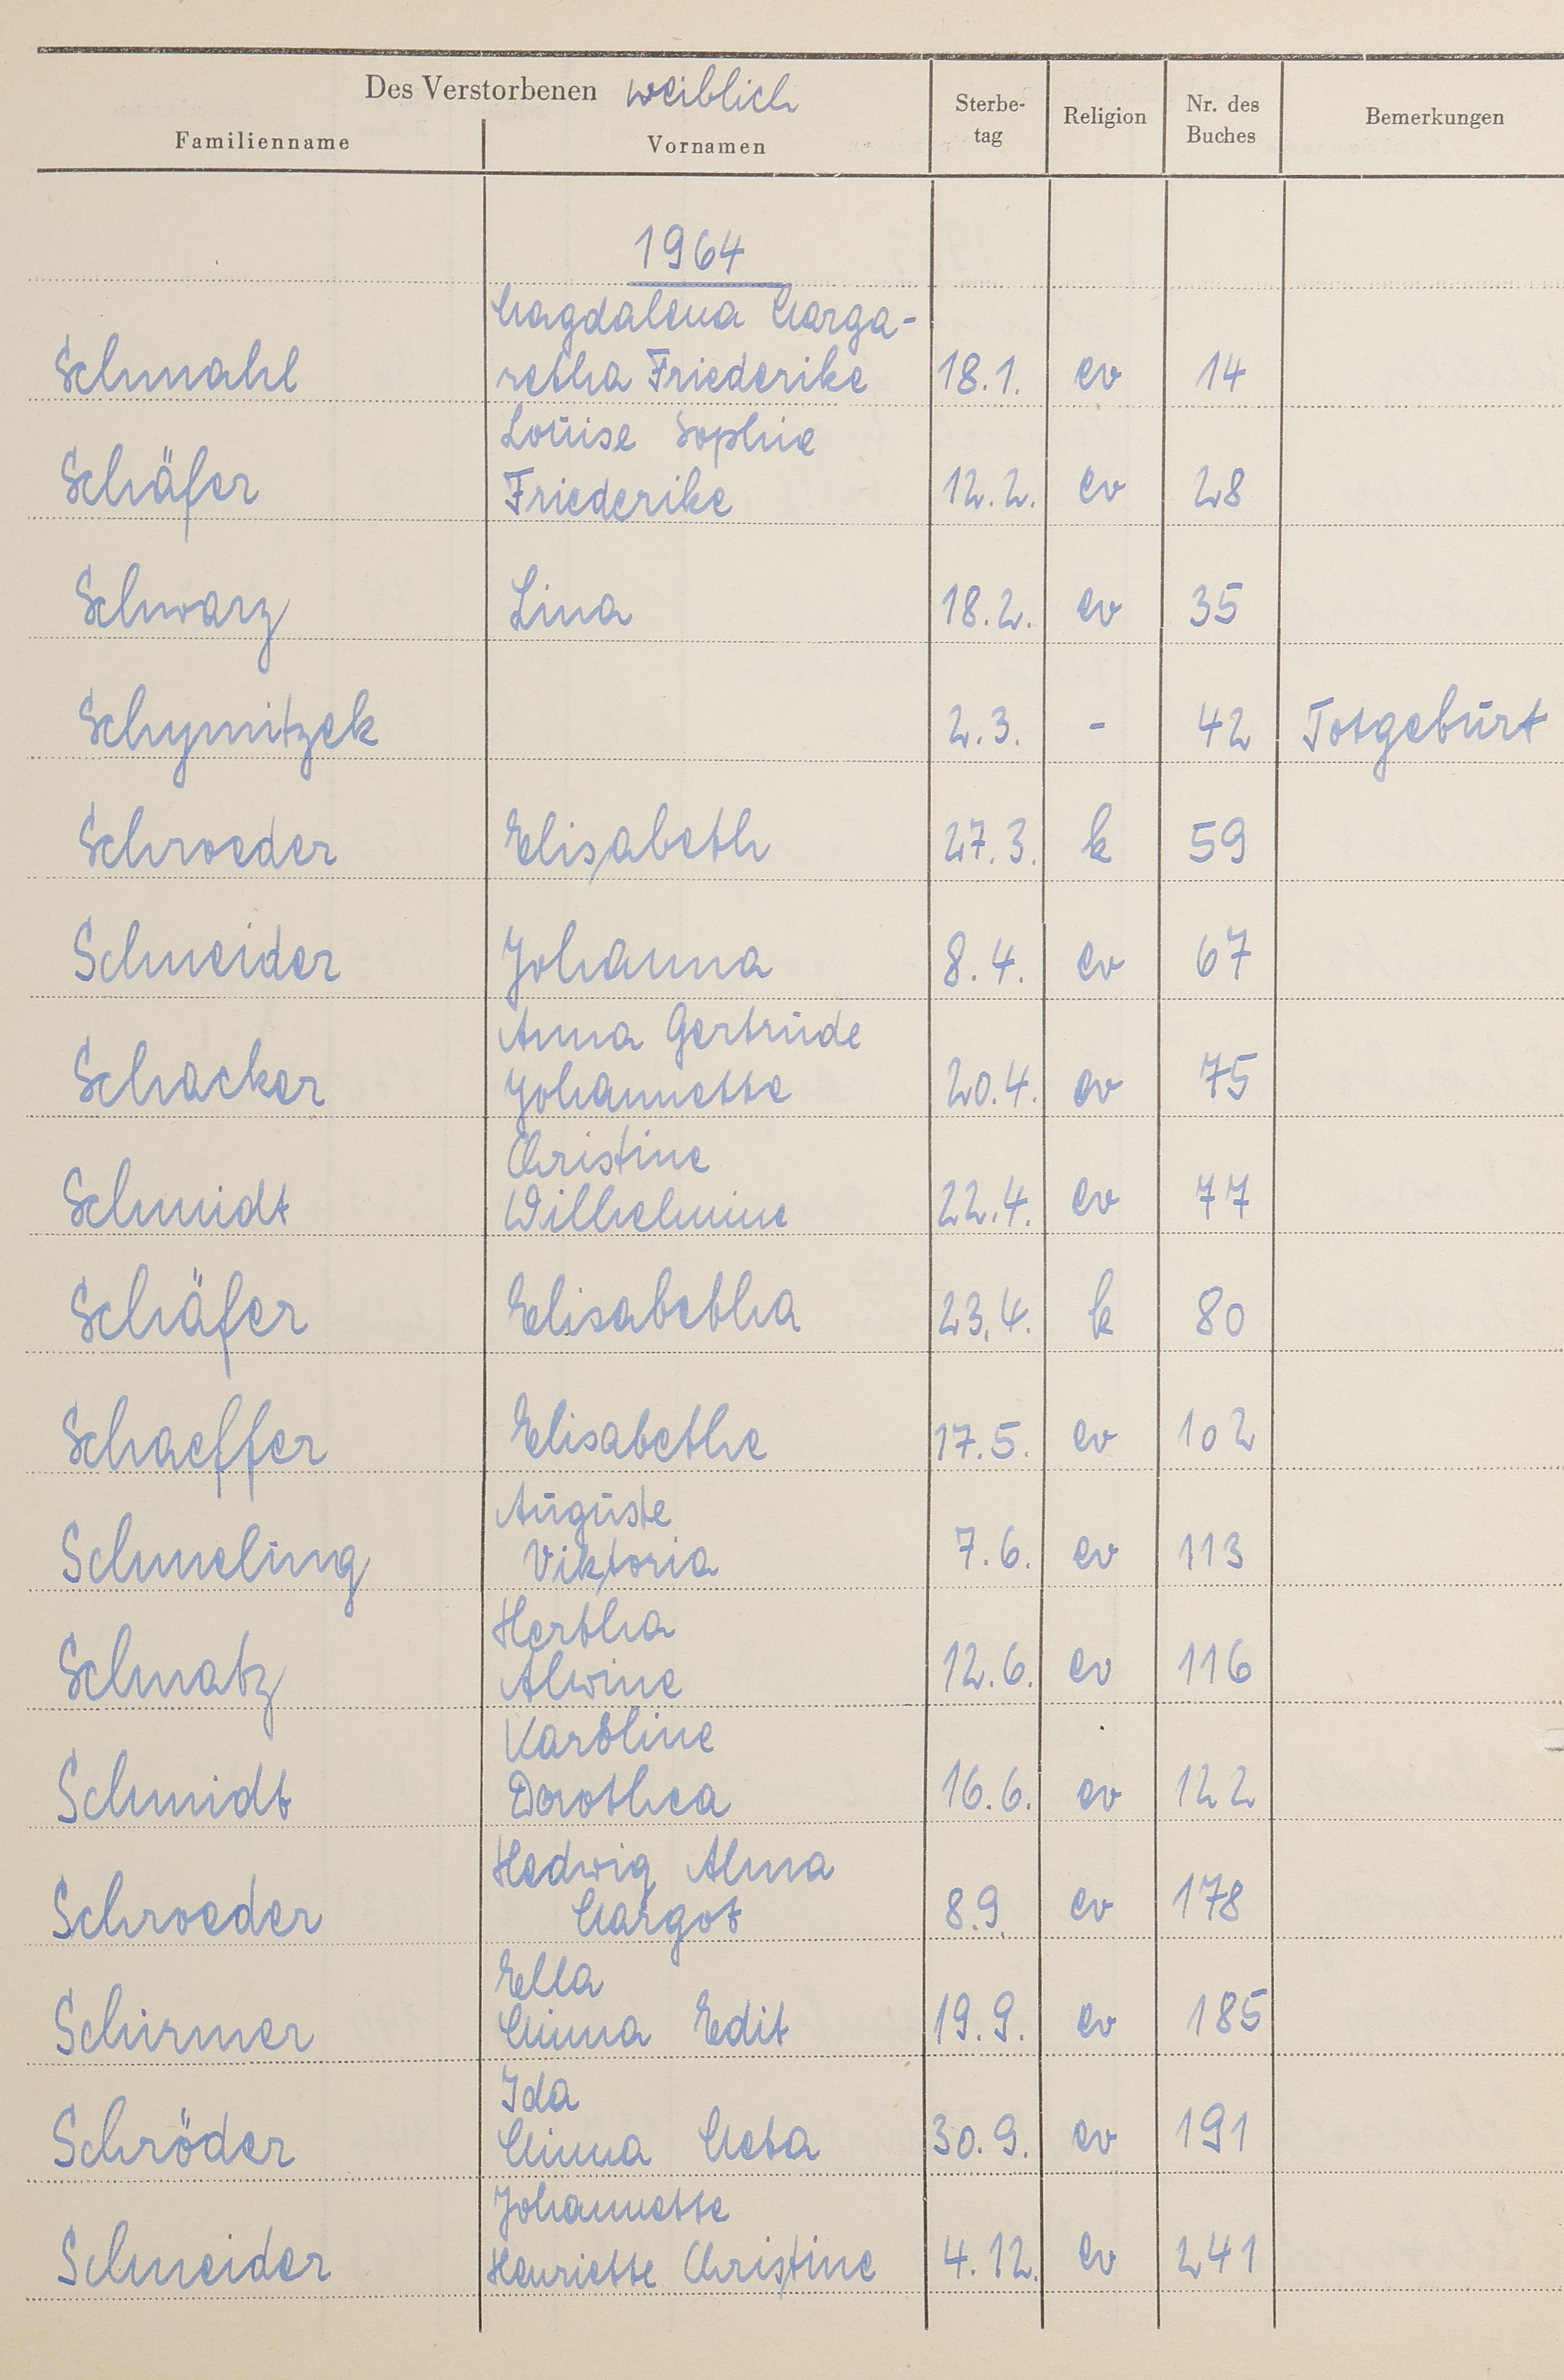 Des Verstorbenen weiblich
Familienname Vornamen Sterbe-tag Religion Nr. des Buches Bemerkungen
1964
Magdalena Marga-
Schmahl retha Friederike 18.1. ev 14
Louise Sophie
Schäfer Friederike 12.2. ev 28
Schwarz Lina 18.2. ev 35
Schymitzek 2.3. - 42 Totgeburt
Schroeder Elisabeth 27.3. k 59
Schneider Johanna 8.4. ev 67
Anna Gertrude
Schacker Johannette 20.4. ev 75
Christine
Schmidt Wilhelmine 22.4. ev 77
Schäfer Elisabetha 23.4. k 80
Schaeffer Elisabethe 17.5. ev 102
Auguste
Schmeling Viktoria 7.6. ev 113
Hertha
Schnatz Alwine 12.6. ev 116
Karoline
Schmidt Dorothea 16.6. ev 122
Hedwig Alma
Schroeder Margot 8.9. ev 178
Ella
Schirmer Minna Edit 19.9. ev 185
Ida
Schröder Minna Meta 30.9. ev 191
Johannette
Schneider Henriette Christine 4.12. ev 241